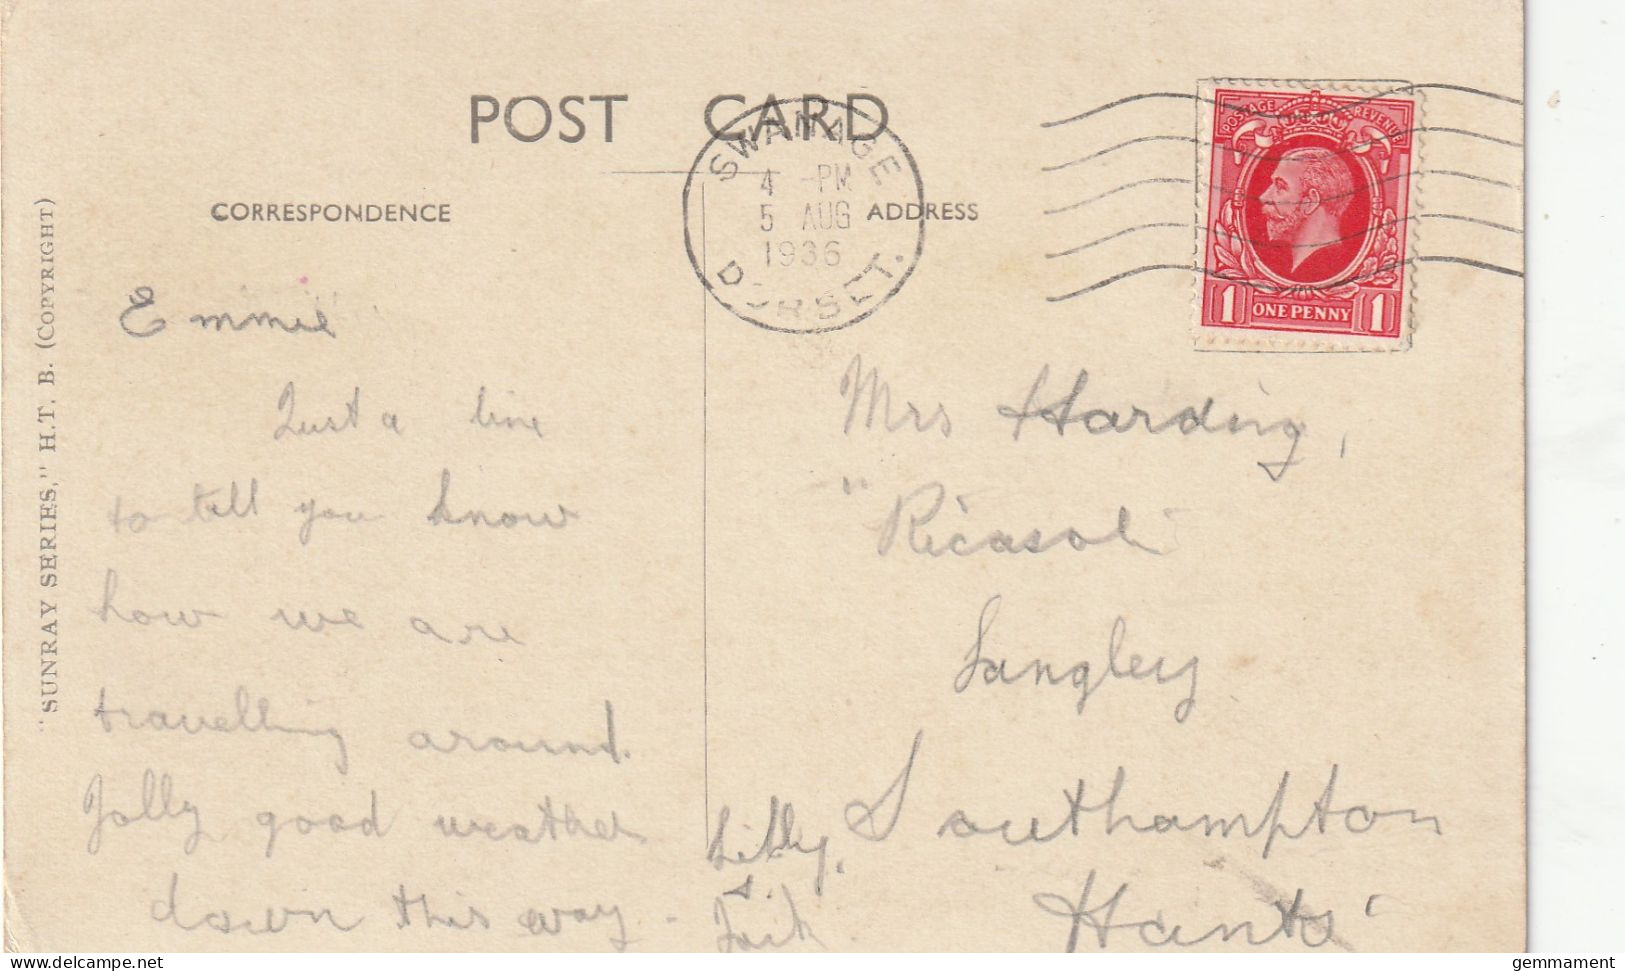 POST CARD
CORRESPONDENCE
ADDRESS
"SUNRAY SERIES," H.T.B. (COPYRIGHT)
SWANAGE
4 - PM
5 AUG
1936
DORSET.
POSTAGE REVENUE
1 ONE PENNY 1
Emmie
Just a line
to tell you know
how we are
travelling around.
Jolly good weather
down this way -
Lilly.
&
Jack.
Mrs Harding,
"Ricasoli"
Langley
Southampton
Hants
gemmament